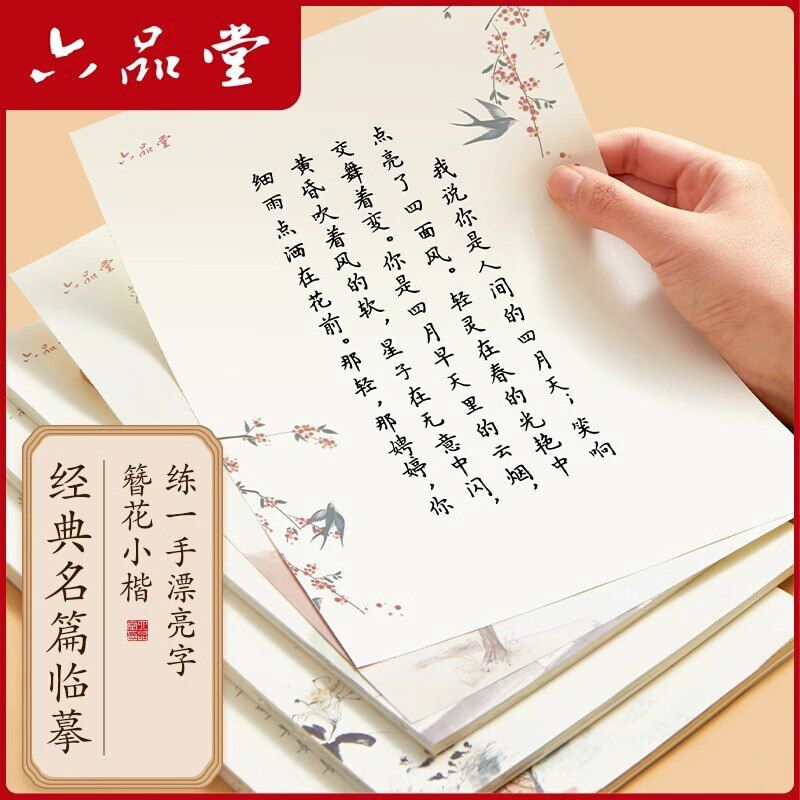 六品堂
六品堂
我说你是人间的四月天;笑响
点亮了四面风。轻灵在春的光艳中
交舞着变。你是四月早天里的云烟,
黄昏吹着风的软,星子在无意中闪,
细雨点洒在花前。那轻,那娉婷,你
六品堂
六品堂
练一手漂亮字
簪花小楷
经典名篇临摹